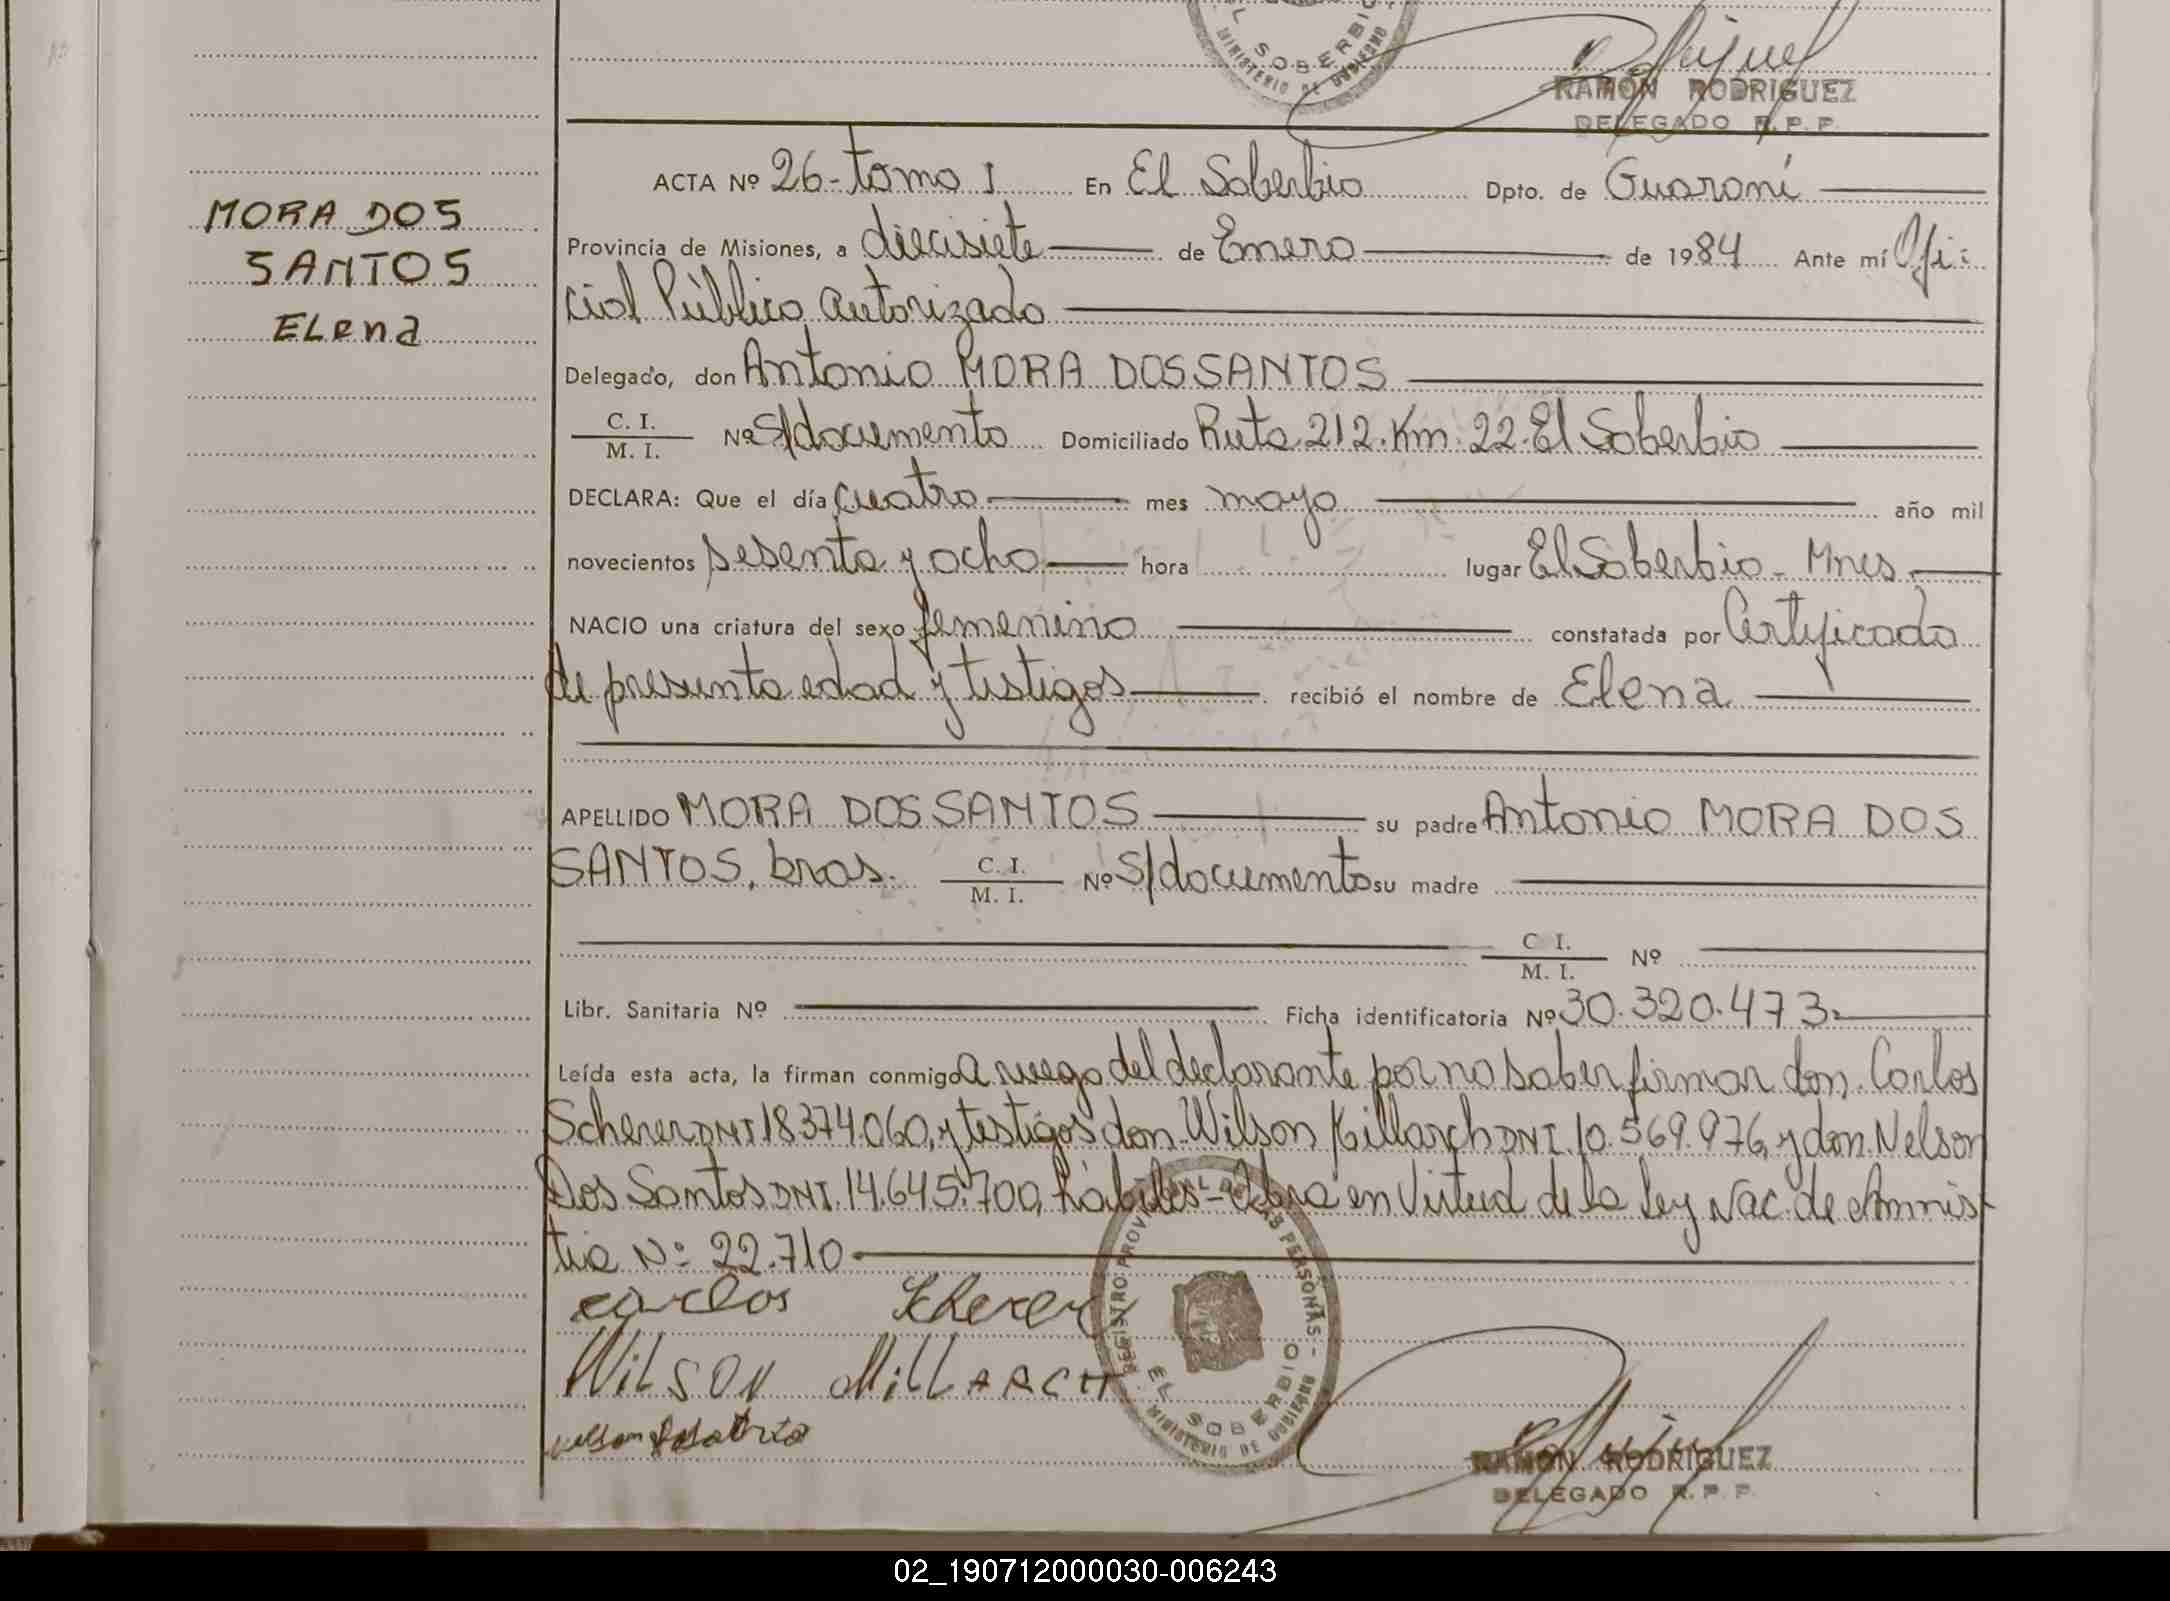 EL SOBERBIO
MINISTERIO DE GOBIERNO
RAMÓN RODRIGUEZ
DELEGADO R.P.P.
MORA DOS
SANTOS
ELena
ACTA Nº 26-tomo I En El Soberbio Dpto. de Guaraní
Provincia de Misiones, a diecisiete de Enero de 1984 Ante mí Ofi-
cial Público autorizado
Delegado, don Antonio MORA DOS SANTOS
C. I.
M. I. Nº S/documento Domiciliado Ruta 212. Km. 22. El Soberbio
DECLARA: Que el día cuatro mes mayo año mil
novecientos sesenta y ocho hora lugar El Soberbio - Mnes
NACIO una criatura del sexo femenino constatada por Certificado
de presunta edad y testigos recibió el nombre de Elena
APELLIDO MORA DOS SANTOS su padre Antonio MORA DOS
SANTOS, bras. C. I.
M. I. Nº S/documento su madre
C I.
M. I. Nº
Libr. Sanitaria Nº Ficha identificatoria Nº 30.320.473
Leída esta acta, la firman conmigo a ruego del declarante por no saber firmar don Carlos
Scherer DNI 18374060, y testigos don Wilson Millarch DNI. 10.569.976, y don Nelson
Dos Santos DNI. 14.645.700, hábiles - Labra en Virtud de la Ley Nac. de Amnis-
tia Nº: 22.710
carlos Scherer
WiLSON MiLLARCH
REGISTRO PROVINCIAL DE LAS PERSONAS -
EL SOBERBIO
MINISTERIO DE GOBIERNO
RAMÓN RODRIGUEZ
DELEGADO R.P.P.
02_190712000030-006243